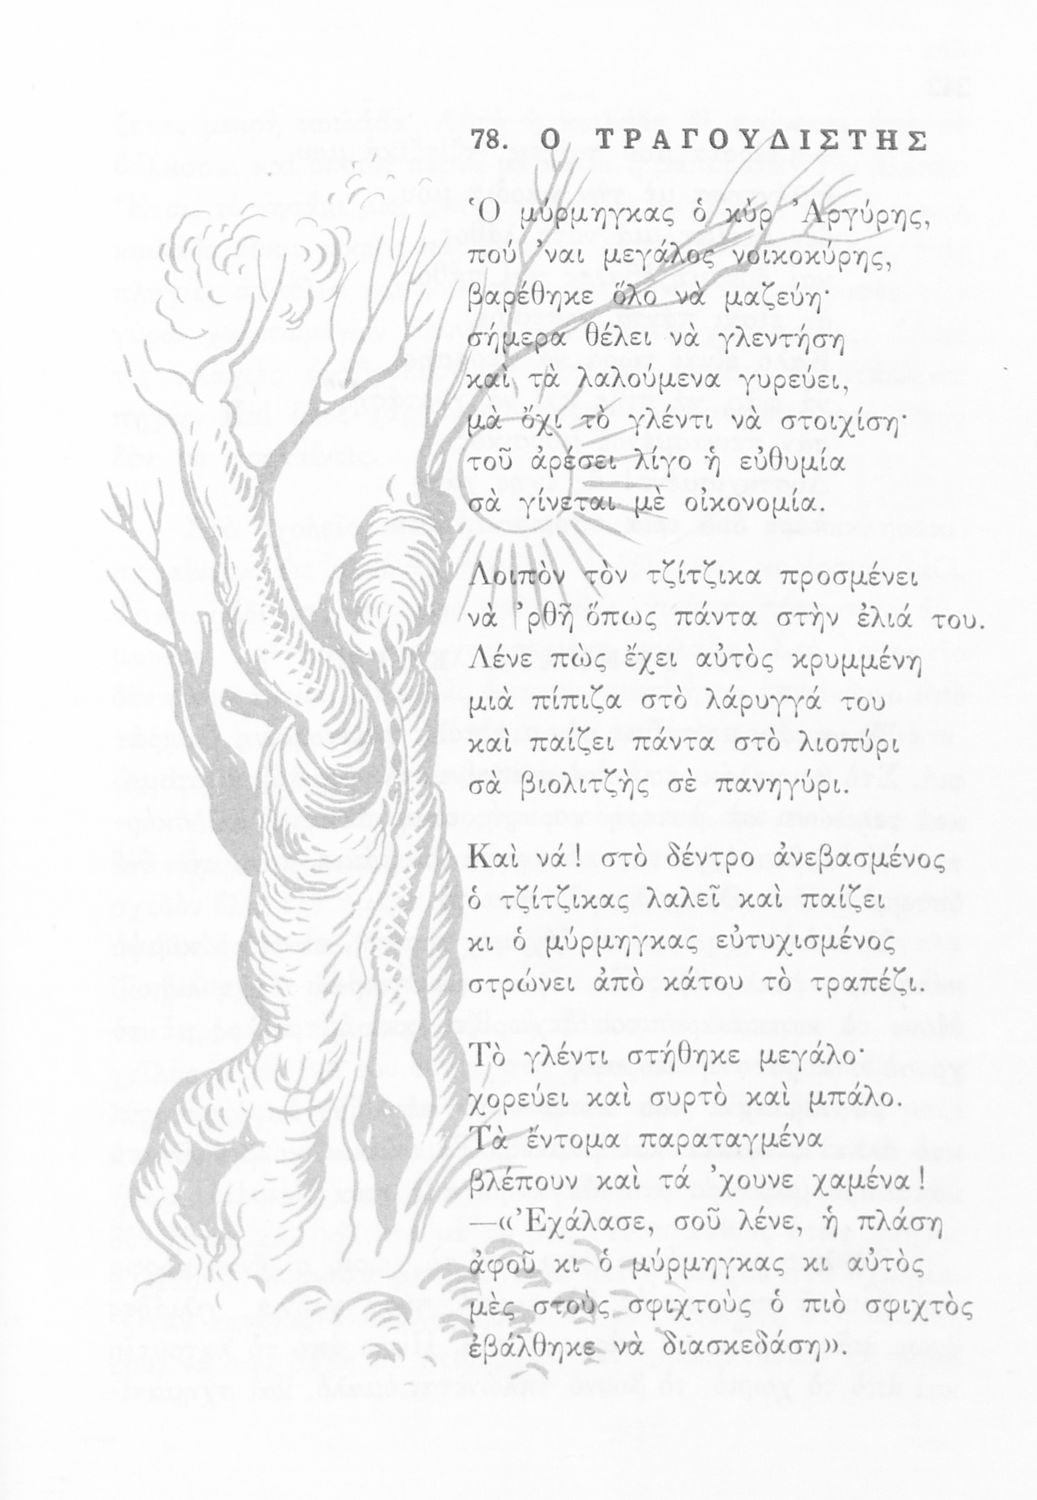 78. Ο ΤΡΑΓΟΥΔΙΣΤΗΣ
Ὁ μύρμηγκας ὁ κὺρ Ἀργύρης,
πού ’ναι μεγάλος νοικοκύρης,
βαρέθηκε ὅλο νὰ μαζεύη·
σήμερα θέλει νὰ γλεντήση
καὶ τὰ λαλούμενα γυρεύει,
μὰ ὄχι τὸ γλέντι νὰ στοιχίση·
τοῦ ἀρέσει λίγο ἡ εὐθυμία
σὰ γίνεται μὲ οἰκονομία.
Λοιπὸν τὸν τζίτζικα προσμένει
νὰ ’ρθῆ ὅπως πάντα στὴν ἐλιά του.
Λένε πὼς ἔχει αὐτὸς κρυμμένη
μιὰ πίπιζα στὸ λάρυγγά του
καὶ παίζει πάντα στὸ λιοπύρι
σὰ βιολιτζὴς σὲ πανηγύρι.
Καὶ νά! στὸ δέντρο ἀνεβασμένος
ὁ τζίτζικας λαλεῖ καὶ παίζει
κι ὁ μύρμηγκας εὐτυχισμένος
στρώνει ἀπὸ κάτου τὸ τραπέζι.
Τὸ γλέντι στήθηκε μεγάλο·
χορεύει καὶ συρτὸ καὶ μπάλο.
Τὰ ἔντομα παραταγμένα
βλέπουν καὶ τά ’χουνε χαμένα!
—«Ἐχάλασε, σοῦ λένε, ἡ πλάση
ἀφοῦ κι ὁ μύρμηγκας κι αὐτὸς
μὲς στοὺς σφιχτοὺς ὁ πιὸ σφιχτὸς
ἐβάλθηκε νὰ διασκεδάση».